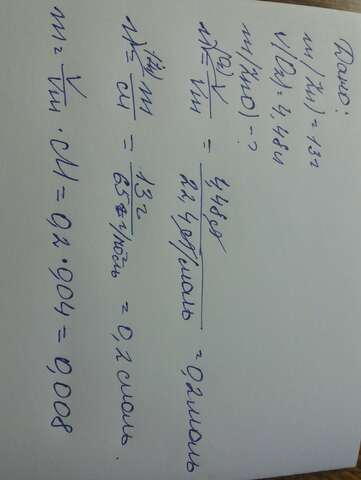 Дано:
m(Zn) = 13г
V(O₂) = 4,48л
m(ZnO) - ?
n(O₂) = V/Vm = 4,48л/22,4л/моль = 0,2моль
n(Zn) = m/M = 13г/65г/моль = 0,2моль.
m = V/Vm · M = 0,2 · 904 = 0,008